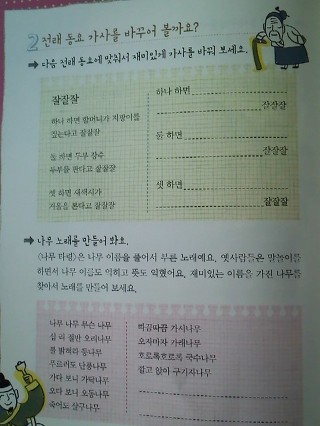 2 전래 동요 가사를 바꾸어 볼까요?
➡ 다음 전래 동요에 맞춰서 재미있게 가사를 바꿔 보세요.
잘잘잘
하나 하면 할머니가 지팡이를
짚는다고 잘잘잘
둘 하면 두부 장수
두부를 판다고 잘잘잘
셋 하면 새색시가
거울을 본다고 잘잘잘
하나 하면
잘잘잘
둘 하면
잘잘잘
셋 하면
잘잘잘
➡ 나무 노래를 만들어 봐요.
〈나무 타령〉은 나무 이름을 풀어서 부른 노래예요. 옛사람들은 말놀이를
하면서 나무 이름도 익히고 뜻도 익혔어요. 재미있는 이름을 가진 나무를
찾아서 노래를 만들어 보세요.
나무 나무 무슨 나무
십 리 절반 오리나무
불 밝혀라 등나무
푸르러도 단풍나무
가다 보니 가닥나무
오다 보니 오동나무
죽어도 살구나무
따끔따끔 가시나무
오자마자 가래나무
호로록호로록 국수나무
깔고 앉아 구기자나무